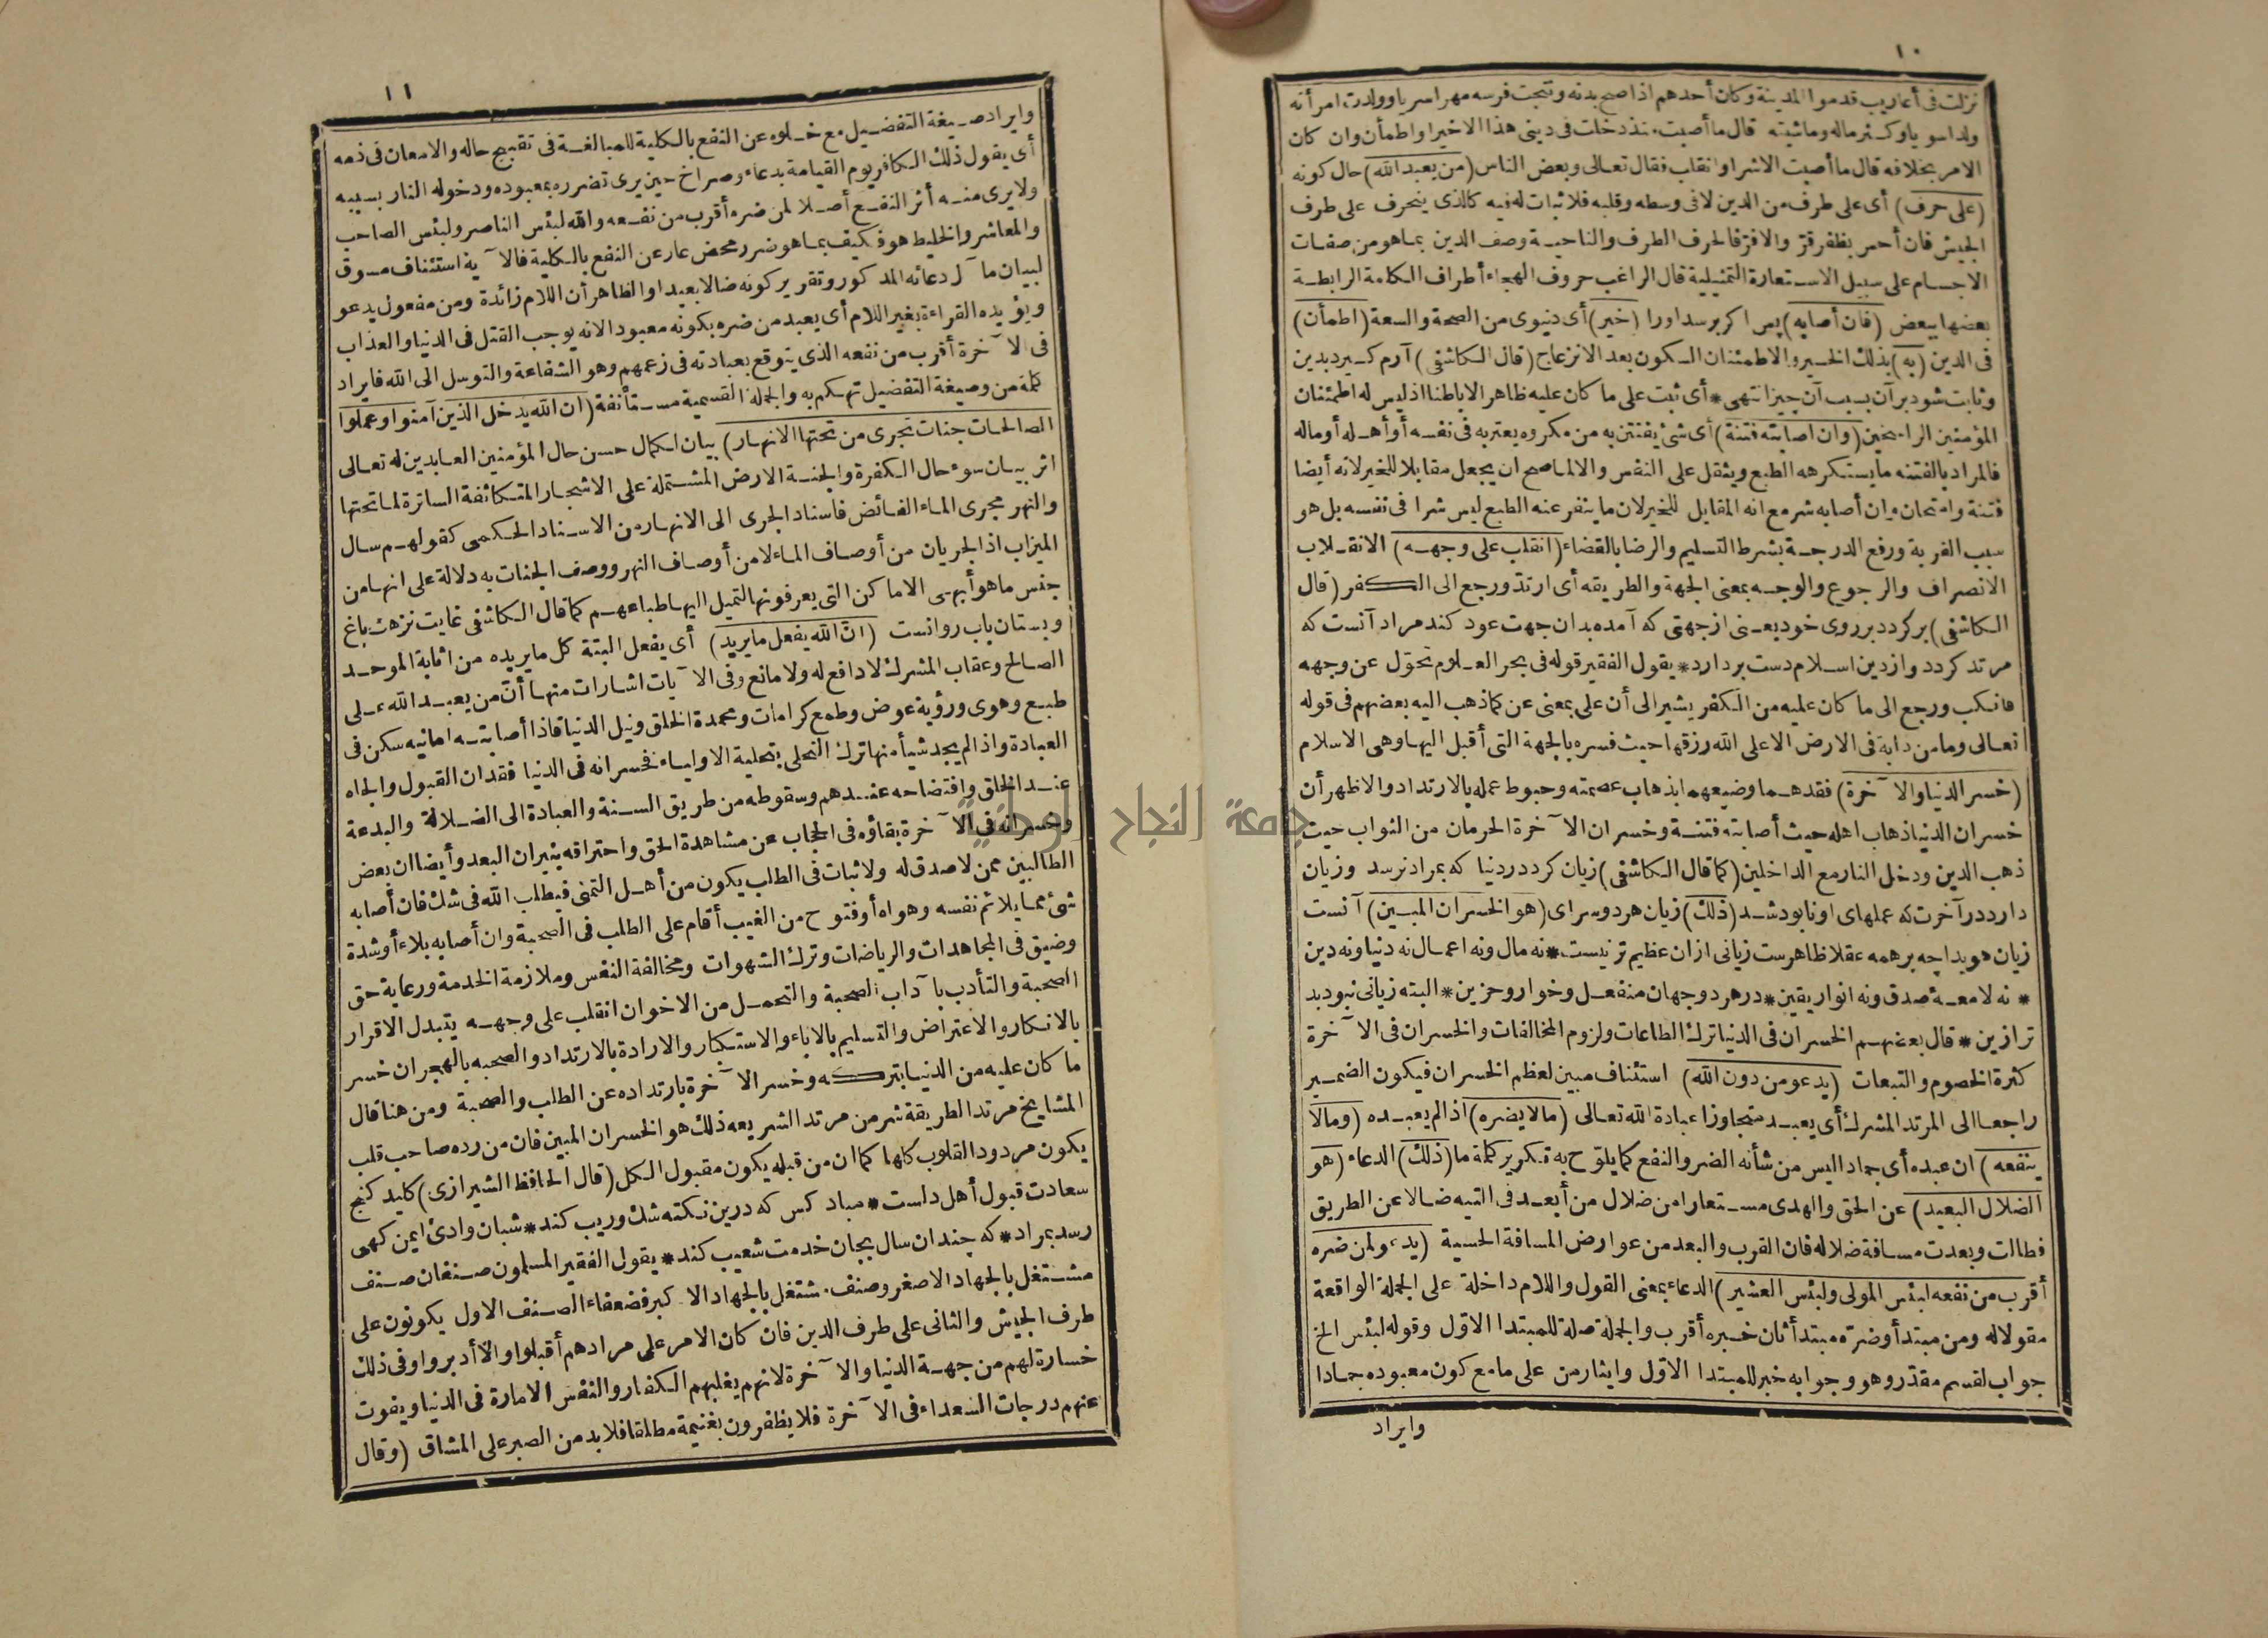 ١٠
نزلت فى أعاريب قدموا المدينة وكان أحدهم اذا صح بدنه ونتجت فرسه مهرا سريا وولدت امرأته
ولدا سويا وكثر ماله وماشيته قال ما أصبت منذ دخلت فى دينى هذا الا خيرا واطمأن وان كان
الامر بخلافه قال ما أصبت الا شرا وانقلب فقال تعالى وبعض الناس (من يعبد الله) حال كونه
(على حرف) أى على طرف من الدين لا فى وسطه وقلبه فلا ثبات له فيه كالذى ينحرف على طرف
الجيش فان أحس بظفر قرّ والا فرّ فالحرف الطرف والناحية وصف الدين بما هو من صفات
الاجسام على سبيل الاستعارة التمثيلية قال الراغب حروف الهجاء أطراف الكلمة الرابطة
بعضها ببعض (فان أصابه) پس اكر برسد اورا (خير) أى دنيوى من الصحة والسعة (اطمأن)
فى الدين (به) بذلك الخير والاطمئنان السكون بعد الانزعاج (قال الكاشفى) آرم كيرد بدين
وثابت شود برآن بسبب آن چيز انتهى * أى ثبت على ما كان عليه ظاهرا لا باطنا اذ ليس له اطمئنان
المؤمنين الراسخين (وان اصابته فتنة) أى شئ يفتتن به من مكروه يعتريه فى نفسه أو أهله أو ماله
فالمراد بالفتنه ما يستكرهه الطبع ويثقل على النفس والا لما صح ان يجعل مقابلا للخير لانه أيضا
فتنة وامتحان وان أصابه شر مع انه المقابل للخير لان ما ينفر عنه الطبع ليس شرا فى نفسه بل هو
سبب القربة ورفع الدرجة بشرط التسليم والرضا بالقضاء (انقلب على وجهه) الانقلاب
الانصراف والرجوع والوجه بمعنى الجهة والطريقه أى ارتد ورجع الى الكفر (قال
الكاشفى) بر كردد بر روى خود يعنى از جهتى كه آمده بدان جهت عود كند مراد آنست كه
مرتد كردد واز دين اسلام دست بردارد * يقول الفقير قوله فى بحر العلوم تحوّل عن وجهه
فانكب ورجع الى ما كان عليه من الكفر يشير الى أن على بمعنى عن كما ذهب اليه بعضهم فى قوله
تعالى وما من دابة فى الارض الا على الله رزقها حيث فسره بالجهة التى أقبل اليها وهى الاسلام
(خسر الدنيا والآخرة) فقدهما وضيعهما بذهاب عصمته وحبوط عمله بالارتداد والاظهر أن
خسران الدنيا ذهاب اهله حيث أصابته فتنة وخسران الآخرة الحرمان من الثواب حيث
ذهب الدين ودخل النار مع الداخلين (كما قال الكاشفى) زيان كرد در دنيا كه بمراد نرسد وزيان
دارد در آخرت كه عملهاى او نابود شد (ذلك) زيان هر دو سراى (هو الخسران المبين) آنست
زيان هويدا چه بر همه عقلا ظاهرست زيانى ازان عظيم تر نيست * نه مال ونه اعمال نه دنيا ونه دين
* نه لامعۀ صدق ونه انوار يقين * در هر دو جهان منفعل وخوار وحزين * البته زيانى نبود بد
تر ازين * قال بعضهم الخسران فى الدنيا ترك الطاعات ولزوم المخالفات والخسران فى الآخرة
كثرة الخصوم والتبعات (يدعو من دون الله) استئناف مبين لعظم الخسران فيكون الضمير
راجعا الى المرتد المشرك أى يعبد متجاوزا عبادة الله تعالى (ما لا يضره) اذا لم يعبده (وما لا
ينفعه) ان عبده أى جماد اليس من شأنه الضر والنفع كما يلوّح به تكرير كلمة ما (ذلك) الدعاء (هو
الضلال البعيد) عن الحق والهدى مستعارا من ضلال من أبعد فى التيه ضالا عن الطريق
فطالت وبعدت مسافة ضلاله فان القرب والبعد من عوارض المسافة الحسية (يدعو لمن ضره
أقرب من نفعه لبئس المولى ولبئس العشير) الدعاء بمعنى القول واللام داخلة على الجملة الواقعة
مقولا له ومن مبتدأ وضرّه مبتدأ ثان خبره أقرب والجملة صلة للمبتدا الاوّل وقوله لبئس الخ
جواب لقسم مقدّر وهو وجوابه خبر للمبتدا الاوّل وايثار من على ما مع كون معبوده جمادا
وايراد
١١
وايراد صيغة التفضيل مع خلوه عن النفع بالكلية للمبالغة فى تقبيح حاله والامعان فى ذمه
أى يقول ذلك الكافر يوم القيامة بدعاء وصراخ حين يرى تضرره بمعبوده ودخوله النار بسببه
ولا يرى منه أثر النفع أصلا لمن ضره أقرب من نفعه والله لبئس الناصر ولبئس الصاحب
والمعاشر والخليط هو فكيف بما هو ضرر محض عار عن النفع بالكلية فالآية استئناف مسوق
لبيان مآل دعائه المذكور وتقرير كونه ضالا بعيدا والظاهر أن اللام زائدة ومن مفعول يدعو
ويؤيده القراءة بغير اللام أى يعبد من ضره بكونه معبودا لانه يوجب القتل فى الدنيا والعذاب
فى الآخرة أقرب من نفعه الذى يتوقع بعبادته فى زعمهم وهو الشفاعة والتوسل الى الله فايراد
كلمة من وصيغة التفضيل تهكم به والجملة القسمية مستأنفة (ان الله يدخل الذين آمنوا وعملوا
الصالحات جنات تجرى من تحتها الانهار) بيان لكمال حسن حال المؤمنين العابدين له تعالى
اثر بيان سوء حال الكفرة والجنة الارض المشتملة على الاشجار المتكاثفة الساترة لما تحتها
والنهر مجرى الماء الفائض فاسناد الجرى الى الانهار من الاسناد الحكمى كقولهم سال
الميزاب اذ الجريان من أوصاف الماء لا من أوصاف النهر ووصف الجنات به دلالة على انها من
جنس ما هو أبهى الاماكن التى يعرفونها لتميل اليها طباعهم كما قال الكاشفى غايت نزهت باغ
وبستان باب روانست (انّ الله يفعل ما يريد) أى يفعل البتة كل ما يريده من اثابة الموحد
الصالح وعقاب المشرك لا دافع له ولا مانع وفى الآيات اشارات منها أنّ من يعبد الله على
طبع وهوى ورؤية عوض وطمع كرامات ومحمدة الخلق ونيل الدنيا فاذا أصابته امانيه سكن فى
العبادة واذا لم يجد شيأ منها ترك التحلى بتحلية الاولياء فخسرانه فى الدنيا فقدان القبول والجاه
عند الخلق وافتضاحه عندهم وسقوطه من طريق السنة والعبادة الى الضلالة والبدعة
وخسرانه فى الآخرة بقاؤه فى الحجاب عن مشاهدة الحق واحتراقه بنيران البعد وأيضا ان بعض
الطالبين ممن لا صدق له ولا ثبات فى الطلب يكون من أهل التمنى فيطلب الله فى شك فان أصابه
شئ مما يلائم نفسه وهواه أو فتوح من الغيب أقام على الطلب فى الصحبة وان أصابه بلاء أو شدة
وضيق فى المجاهدات والرياضات وترك الشهوات ومخالفة النفس وملازمة الخدمة ورعاية حق
الصحبة والتأدب بآداب الصحبة والتحمل من الاخوان انقلب على وجهه يتبدل الاقرار
بالانكار والاعتراض والتسليم بالاباء والاستكبار والارادة بالارتداد والصحبه بالهجران خسر
ما كان عليه من الدنيا بتركه وخسر الآخرة بارتداده عن الطلب والصحبة ومن هنا قال
المشايخ مرتد الطريقة شر من مرتد الشريعه ذلك هو الخسران المبين فان من رده صاحب قلب
يكون مردود القلوب كلها كما ان من قبله يكون مقبول الكل (قال الحافظ الشيرازى) كليد كنج
سعادت قبول أهل دلست * مباد كس كه درين نكته شك وريب كند * شبان وادئ ايمن كهى
رسد بمراد * كه چندان سال بجان خدمت شعيب كند * يقول الفقير المسلمون صنفان صنف
مشتغل بالجهاد الاصغر وصنف مشتغل بالجهاد الاكبر فضعفاء الصنف الاول يكونون على
طرف الجيش والثانى على طرف الدين فان كان الامر على مرادهم أقبلوا والّا أدبروا وفى ذلك
خسارة لهم من جهة الدنيا والآخرة لانهم يغلبهم الكفار والنفس الامارة فى الدنيا ويفوت
عنهم درجات السعداء فى الآخرة فلا يظفرون بغنيمة مطلقا فلا بد من الصبر على المشاق (وقال
جامعة النجاح الوطنية